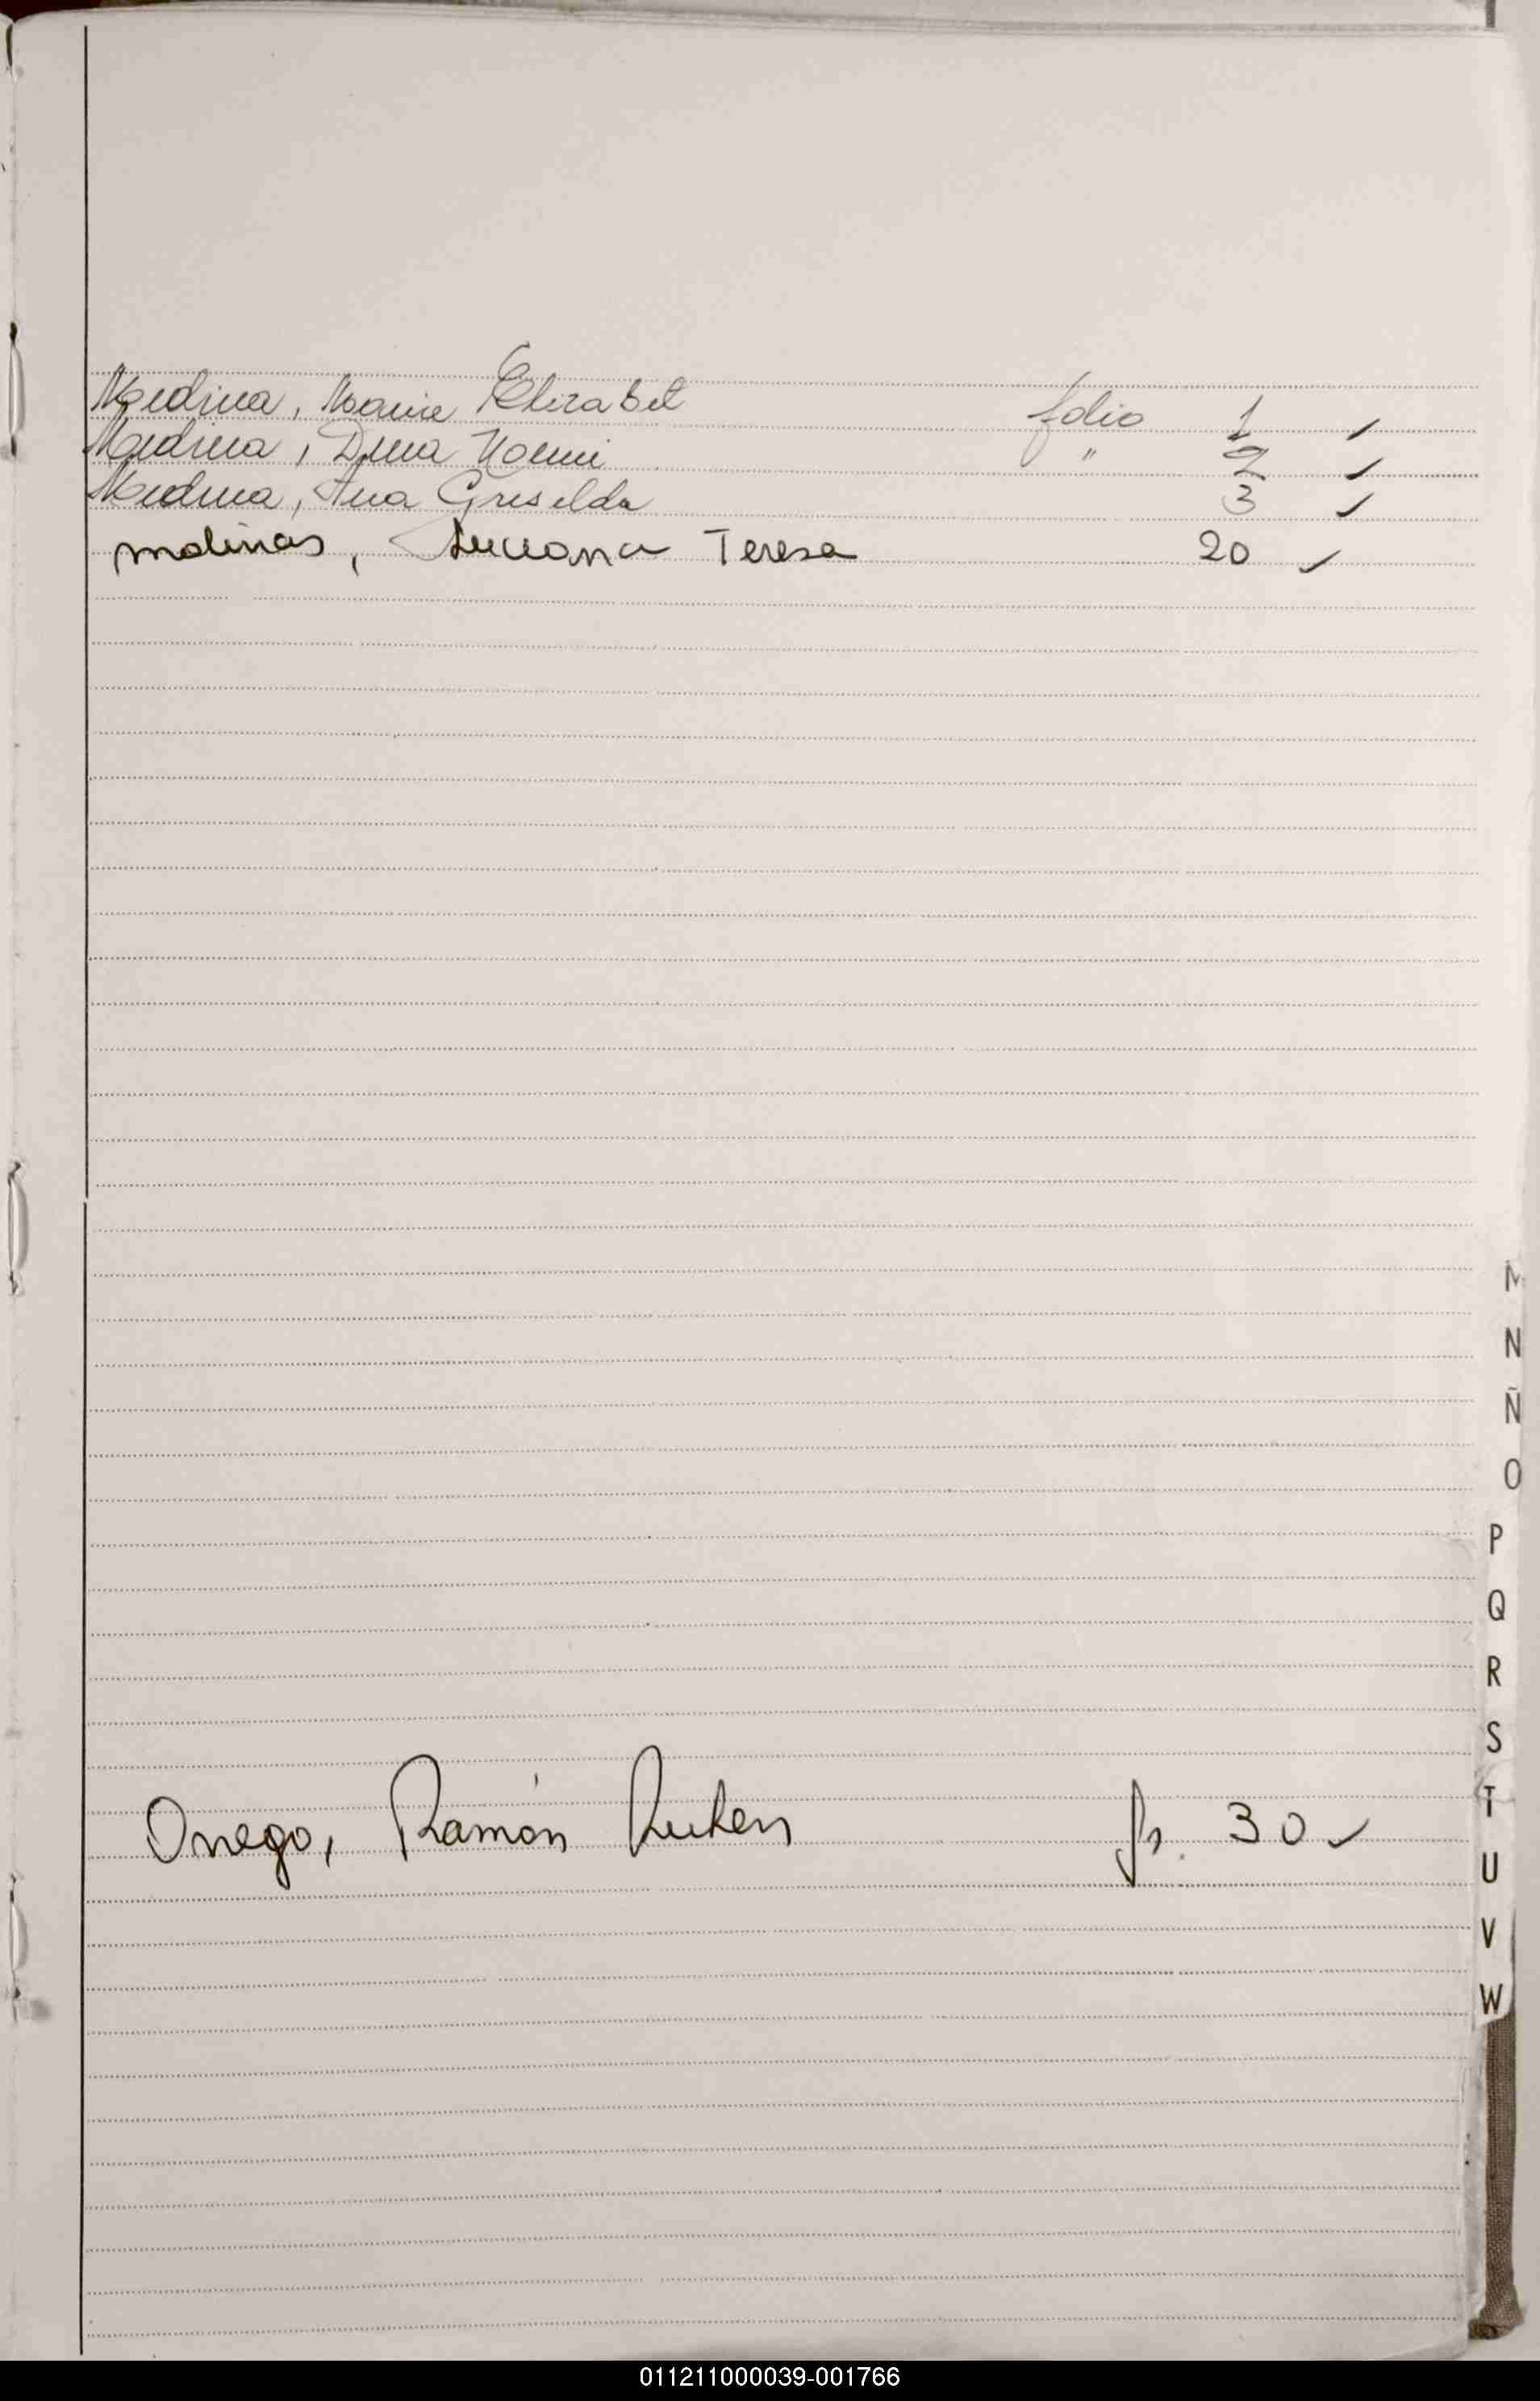 Medina, Marie Elizabet folio 1
Medina, Dina Noemi " 2
Medina, Ana Griselda 3
molinas, Luciana Teresa 20 ✓
M
N
Ñ
O
P
Q
R
S
T
Onego, Ramón Ruben fs. 30 ✓
U
V
W
011211000039-001766